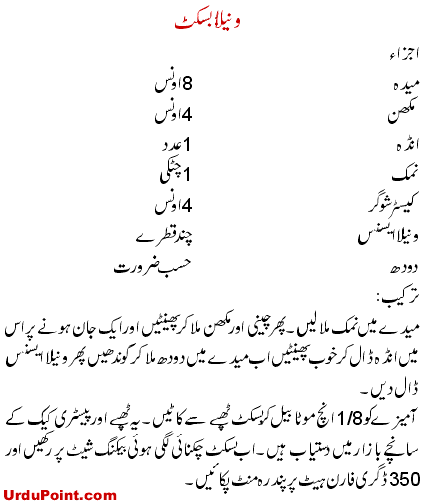 ونیلا بسکٹ
اجزاء
میدہ 8 اونس
مکھن 4 اونس
انڈہ 1 عدد
نمک 1 چٹکی
کیسٹر شوگر 4 اونس
ونیلا ایسنس چند قطرے
دودھ حسب ضرورت
ترکیب:
میدے میں نمک ملا لیں۔ پھر چینی اور مکھن ملا کر پھینٹیں اور ایک جان ہونے پر اس
میں انڈہ ڈال کر خوب پھینٹیں اب میدے میں دودھ ملا کر گوندھیں پھر ونیلا ایسنس
ڈال دیں۔
آمیزے کو 1/8 انچ موٹا بیل کر بسکٹ ٹھپے سے کاٹیں۔ یہ ٹھپے اور پیسٹری کیک کے
سانچے بازار میں دستیاب ہیں۔ اب بسکٹ چکنائی لگی ہوئی بیکنگ شیٹ پر رکھیں اور
350 ڈگری فارن ہیٹ پر پندرہ منٹ پکائیں۔
UrduPoint.com